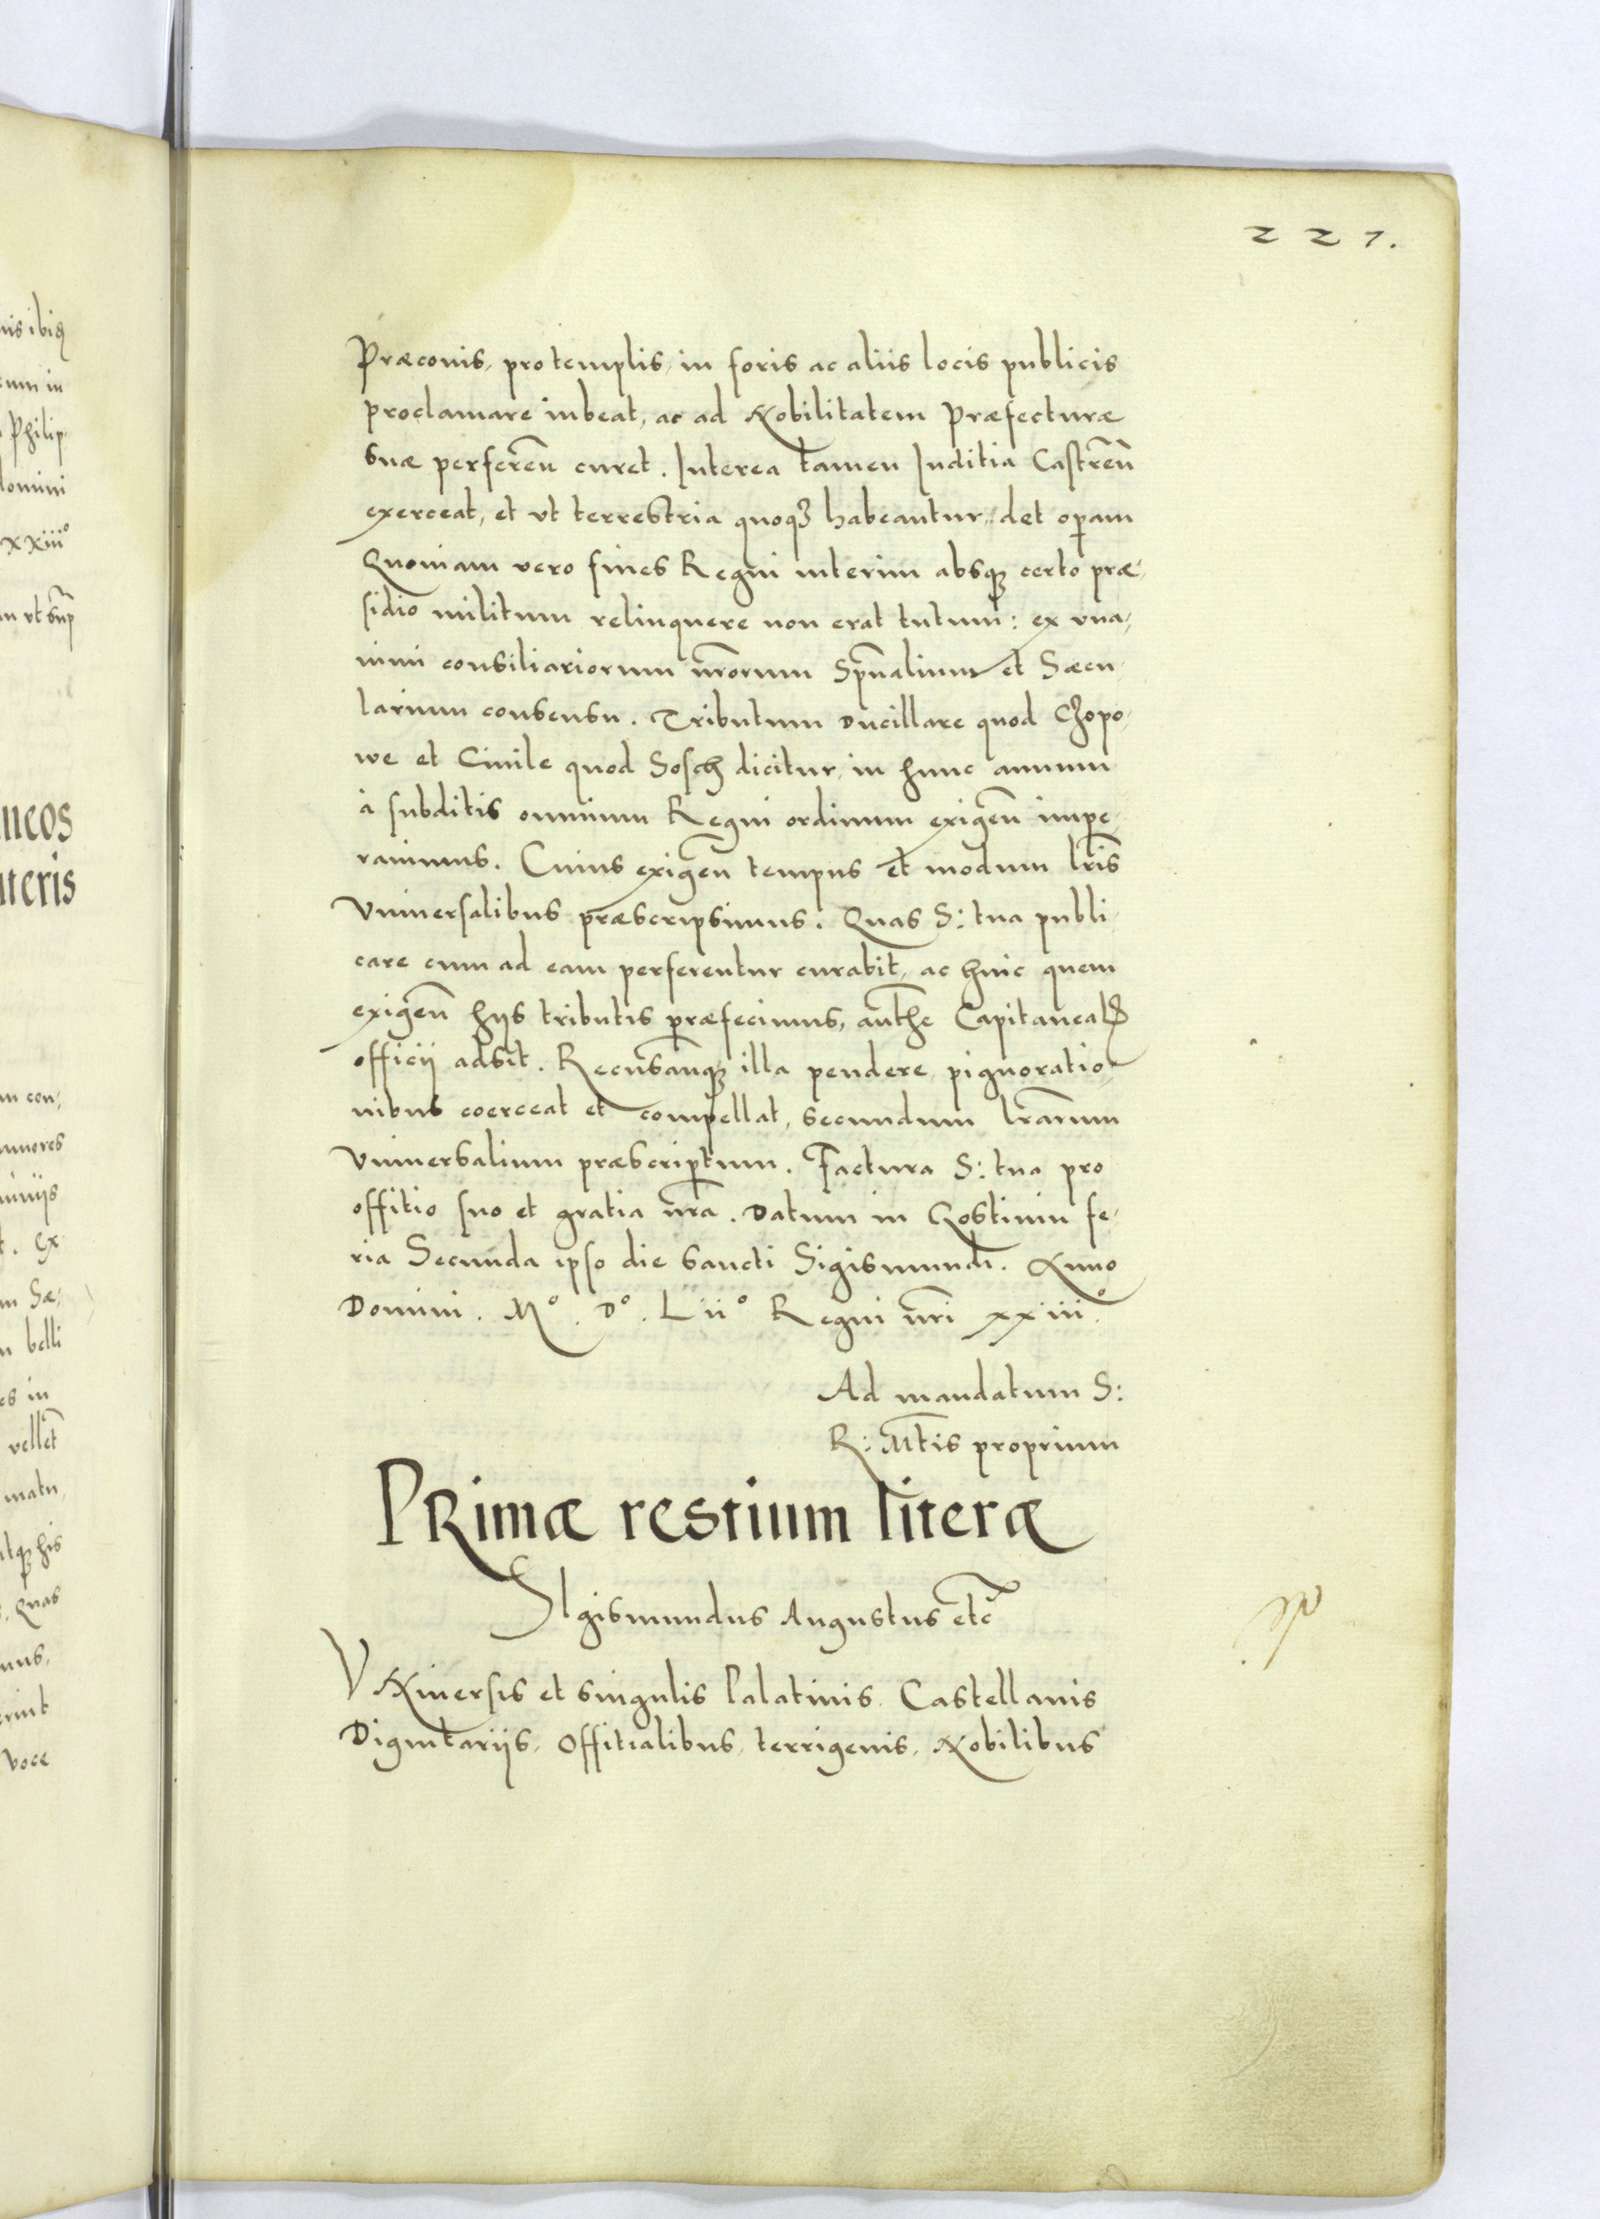 221.
Præconis, pro templis, in foris ac aliis locis publicis
proclamare iubeat, ac ad Nobilitatem Præfecturæ
suæ perferen̄ curet. Interea tamen Iuditia Castren̄
exerceat, et ut terrestria quoq3 habeantur, det operam
Quoniam vero fines Regni interim absq3 certo præ-
sidio militum relinquere non erat tutum: ex una-
nimi consiliariorum nr̄orum Spūalium et Sæcu-
larium consensu. Tributum Ducillare quod Czopo-
we et Civile quod Sosch dicitur, in hunc annum
à subditis omnium Regni ordinum exigen̄ impe-
ravimus. Cuius exigen̄ tempus et modum lr̄is
Vniversalibus præscripsimus. Quas S: tua publi-
care cum ad eam perferentur curabit, ac huic quem
exigen̄ hijs tributis præfecimus, auth̄e Capitaneal3
officij adsit. Recusan̄q3 illa pendere pignoratio-
nibus coerceat et compellat, secundum lr̄arum
Vniversalium præscriptum. Factura S: tua pro
offitio suo et gratia nr̄a. Datum in Gostinin fe-
ria Secunda ipso die sancti Sigismundi. Anno
Domini. Mº. Dº. Liiº Regni nr̄i xxiiiº.
Ad mandatum S:
R: Mt̄is proprium
PRimæ restium literæ
SIgismundus Augustus etc̄
VNiversis et singulis Palatinis, Castellanis
Dignitariis, Offitialibus, terrigenis, Nobilibus